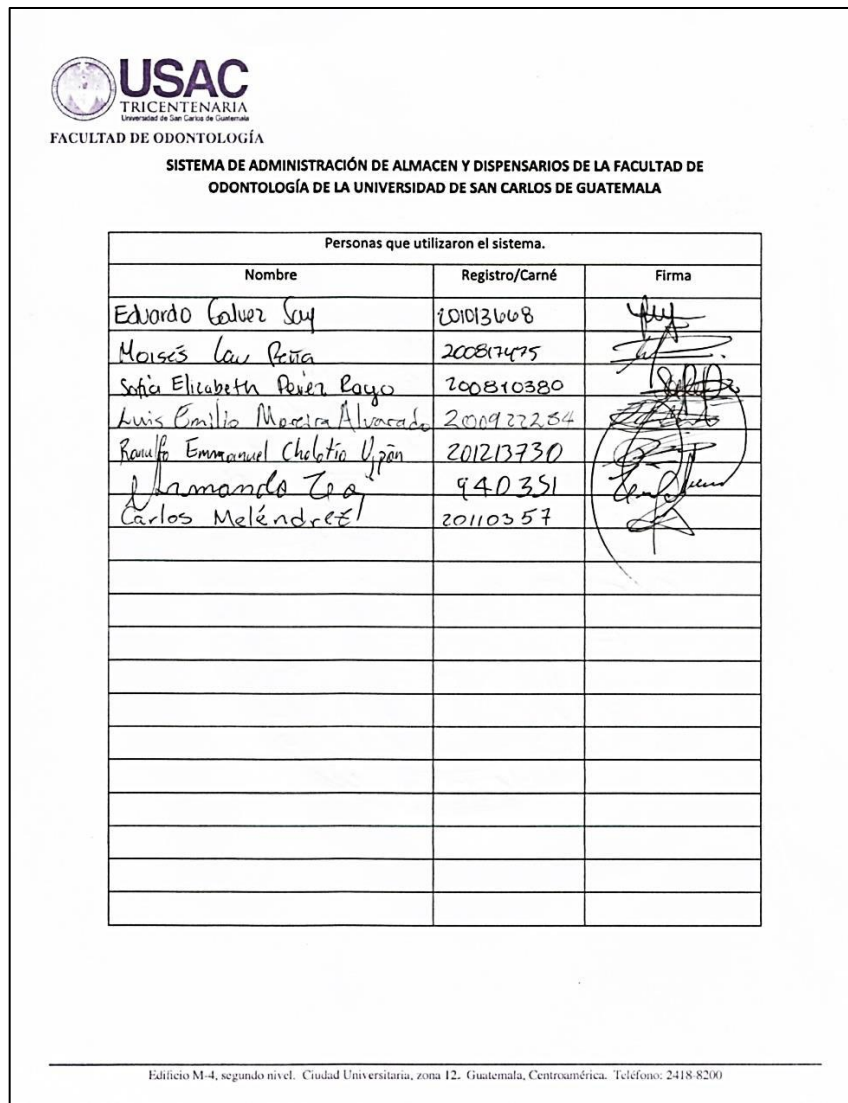 USAC
TRICENTENARIA
Universidad de San Carlos de Guatemala
FACULTAD DE ODONTOLOGÍA
SISTEMA DE ADMINISTRACIÓN DE ALMACEN Y DISPENSARIOS DE LA FACULTAD DE
ODONTOLOGÍA DE LA UNIVERSIDAD DE SAN CARLOS DE GUATEMALA
Personas que utilizaron el sistema.
Nombre Registro/Carné Firma
Eduardo Galvez
Moisés Lau Peña 200817475
Sofia Elizabeth Perez 200810380
Luis Emilio Moreira Alvarado 200922284
Ranulfo Emmanuel Cholotío 201213730
Armando 940351
Carlos Meléndrez 20110357
Edificio M-4, segundo nivel. Ciudad Universitaria, zona 12. Guatemala, Centroamérica. Teléfono: 2418-8200